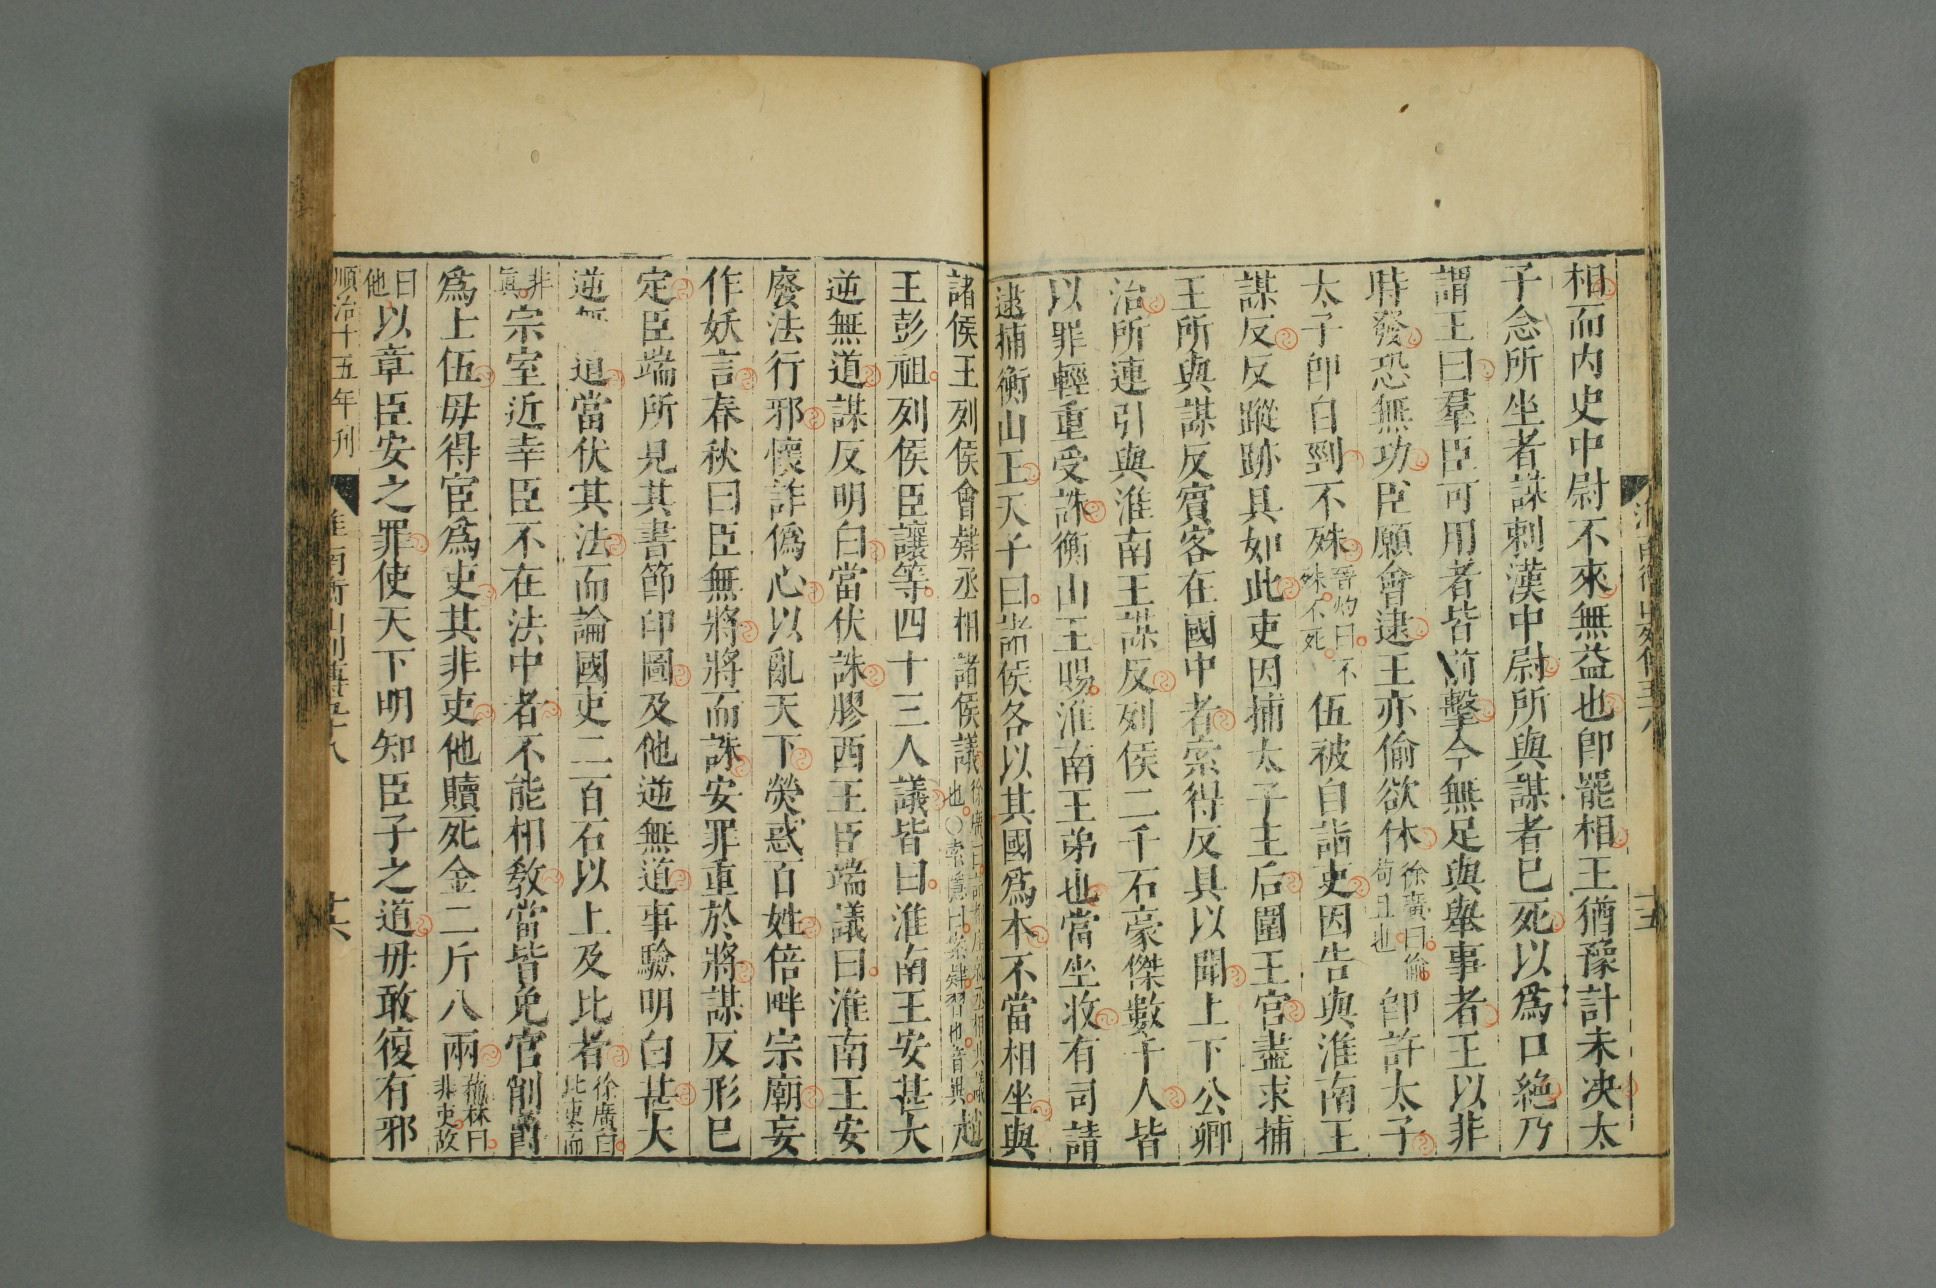 相而内史中尉不來無益也卽罷相王猶豫計未决太
子念所坐者謀刺漢中尉所與謀者已死以爲口絶乃
謂王曰羣臣可用者皆前擊今無足與舉事者王以非
時發恐無功臣願會逮王亦偷欲休徐廣曰偷苟且也卽許太子
太子卽自剄不殊晉灼曰不殊不死伍被自詣吏因告與淮南王
謀反反蹤跡具如此吏因捕太子王后圍王宫盡求捕
王所與謀反賓客在國中者索得反具以聞上下公卿
治所連引與淮南王謀反列侯二千石豪傑數千人皆
以罪輕重受誅衡山王賜淮南王弟也當坐收有司請
逮捕衡山王天子曰諸侯各以其國爲本不當相坐與
十五
諸侯王列侯會肄丞相諸侯議也○索隱曰案肄習也音異趙
王彭祖列侯臣讓等四十三人議皆曰淮南王安甚大
逆無道謀反明白當伏誅膠西王臣端議曰淮南王安
廢法行邪懷詐僞心以亂天下熒惑百姓倍畔宗廟妄
作妖言春秋曰臣無將將而誅安罪重於將謀反形已
定臣端所見其書節印圖及他逆無道事驗明白甚大
逆無道當伏其法而論國吏二百石以上及比者徐廣曰比吏而
非眞宗室近幸臣不在法中者不能相敎當皆免官削爵
爲上伍毋得宦爲吏其非吏他贖死金二斤八兩蘇林曰非吏故
曰他以章臣安之罪使天下明知臣子之道毋敢復有邪
順治十五年刊
淮南衡山列傳五十八
十六